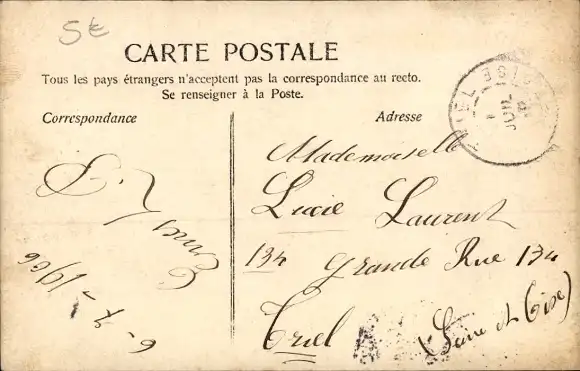 5€
CARTE POSTALE
Tous les pays étrangers n'acceptent pas la correspondance au recto.
Se renseigner à la Poste.
Correspondance
Adresse
6-7-1906
Mademoiselle
Lucie Laurent
134 Grande Rue 134
Triel
(Seine et Oise)